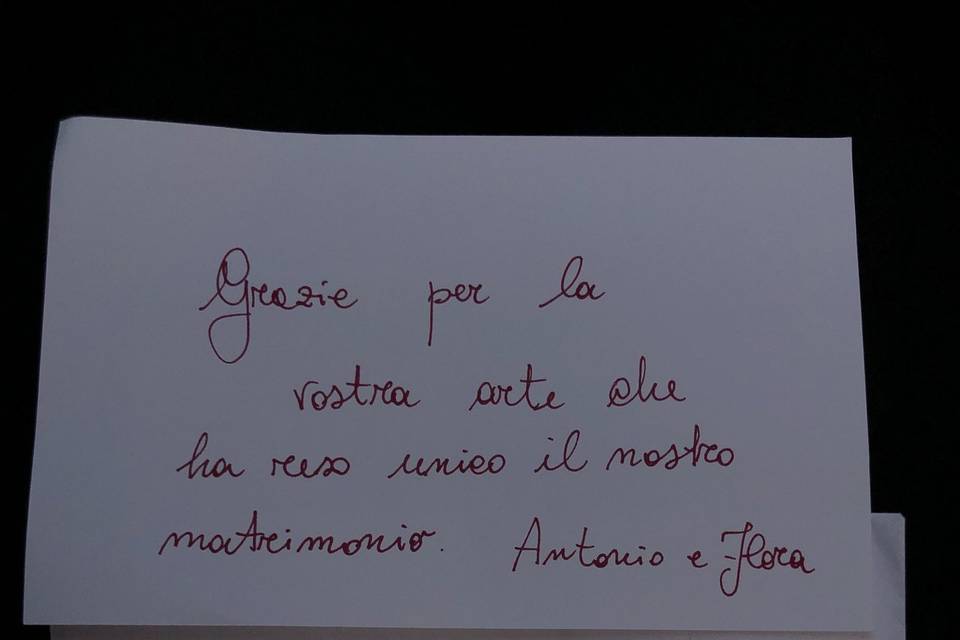 Grazie per la
vostra arte che
ha reso unico il nostro
matrimonio. Antonio e Flora